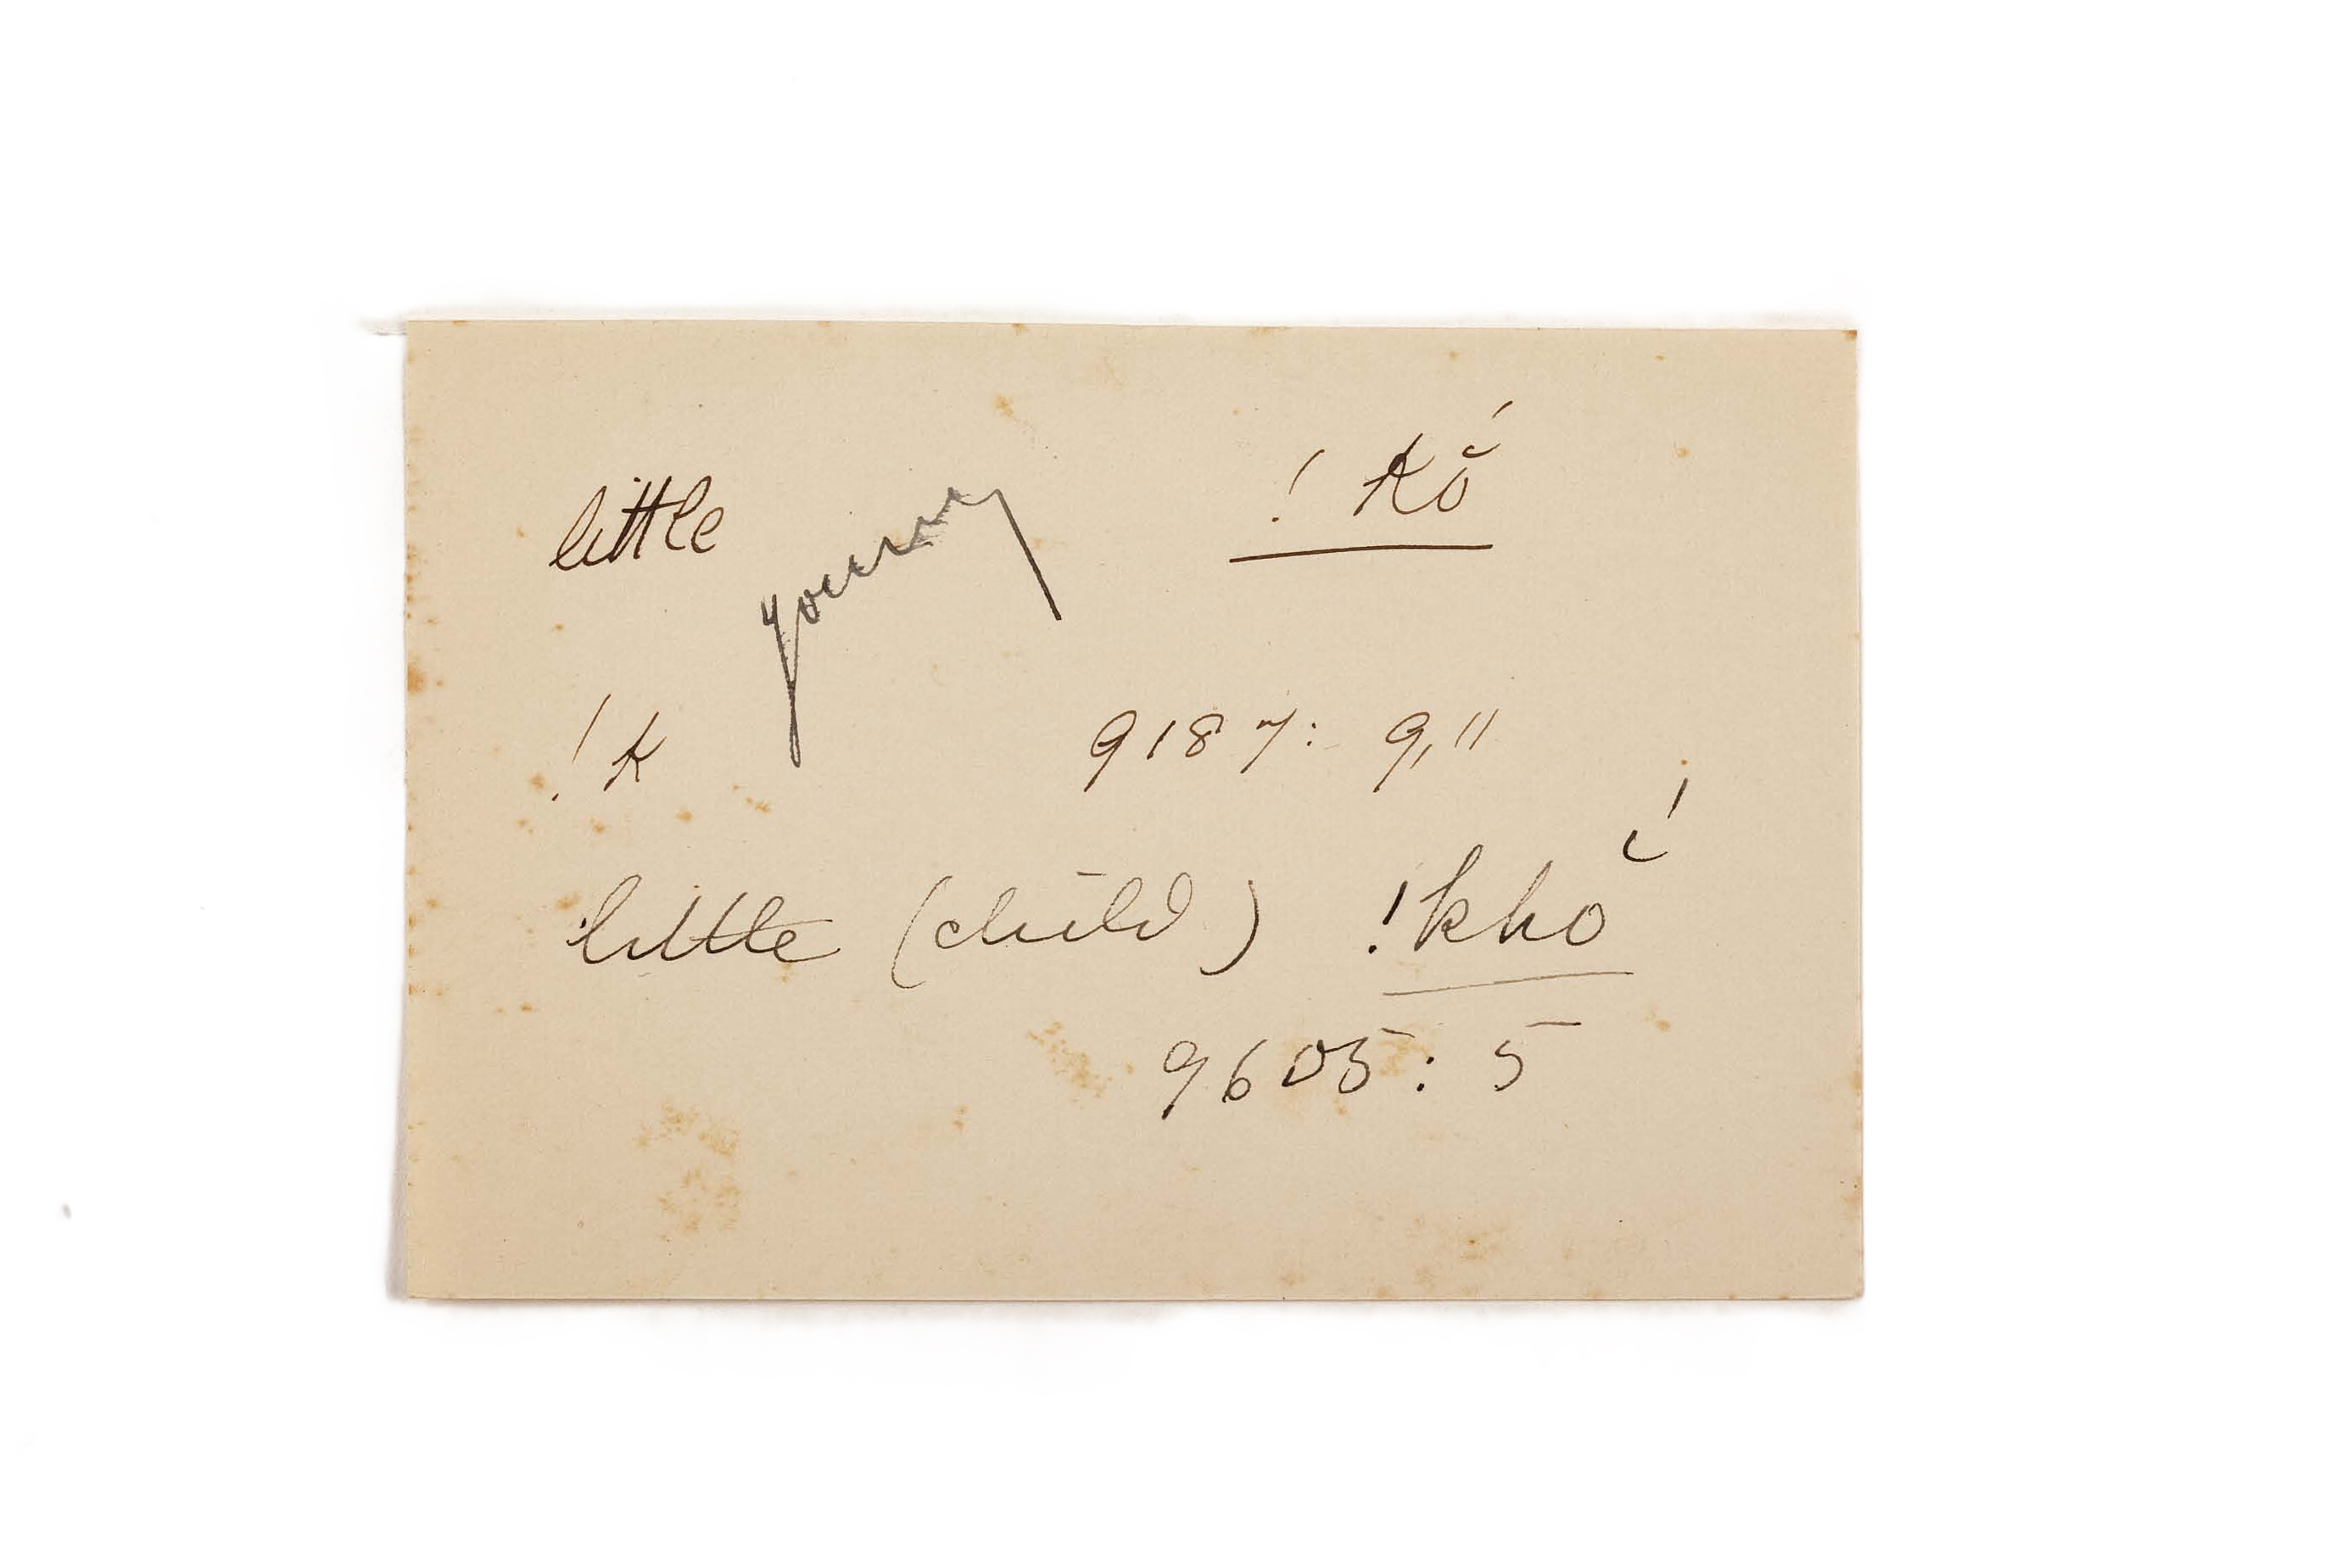 little young ! kŏ́
! k 9187: 9, 11
little (child) !khŏ́
9605: 5